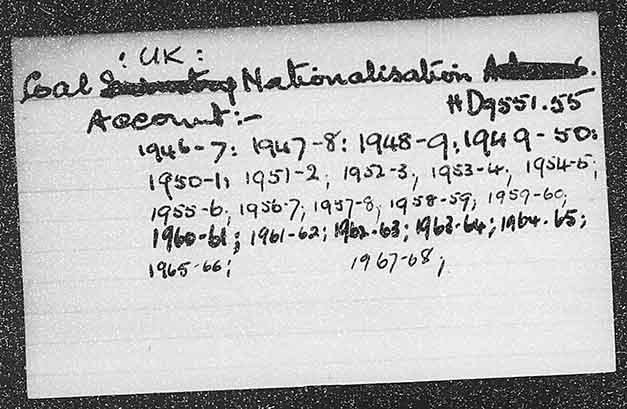 : UK :
Coal Nationalisation
Account:- HD9551.55
1946-7: 1947-8: 1948-9; 1949-50;
1950-1; 1951-2; 1952-3; 1953-4; 1954-5;
1955-6; 1956-7; 1957-8; 1958-59; 1959-60;
1960-61; 1961-62; 1962-63; 1963-64; 1964-65;
1965-66; 1967-68;